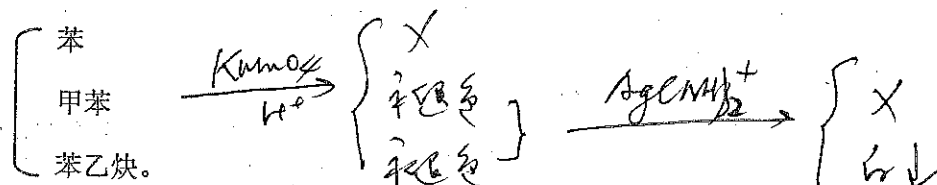 苯
甲苯
苯乙炔。
KMnO4
H+
X
褪色
褪色
Ag(NH3)2+
X
白↓